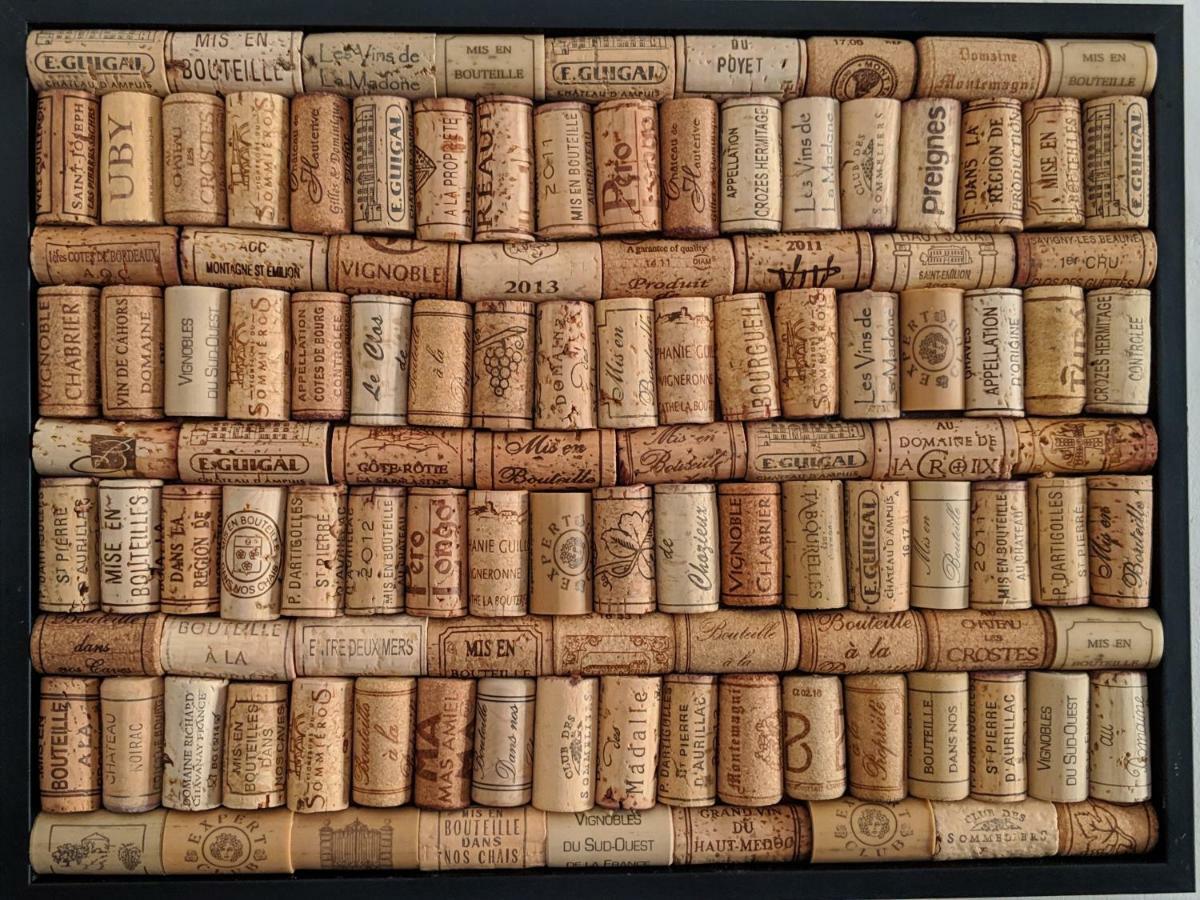 E.GUIGAL
CHATEAU D'AMPUIS
MIS EN
BOUTEILLE
Les Vins de
La Madone
MIS EN
BOUTEILLE
E.GUIGAL
CHATEAU D'AMPUIS
DU
POYET
17.06
Domaine
Montemagni
MIS EN
BOUTEILLE
SAINT-JOSEPH
UBY
CHATEAU
LES
CROSTES
SOMMIÉROIS
Château de
Hauterive
Gilles & Dominique
E.GUIGAL
A LA PROPRIÉTÉ
REAUT
2011
MIS EN BOUTEILLE
Pero
Château de
Hauterive
APPELLATION
CROZES HERMITAGE
Les Vins de
La Madone
CLUB DES
SOMMELIERS
Preignes
DANS LA
RÉGION DE
PRODUCTION
MISE EN
BOUTEILLES
E.GUIGAL
1ères COTES DE BORDEAUX
A.O.C
AOC
MONTAGNE ST EMILION
VIGNOBLE
2013
A guarantee of quality
14.11
DIAM
Produit
2011
SAINT-EMILION
SAVIGNY-LES-BEAUNE
1er CRU
CLOS DES GUETTES
VIGNOBLE
CHABRIER
VIN DE CAHORS
DOMAINE
VIGNOBLES
DU SUD-OUEST
SOMMIÉROIS
APPELLATION
COTES DE BOURG
CONTROLÉE
Le Clos
de
à la
DOMAINE
Mis en
VIGNERONNE
BOURGUEIL
SOMMIÉROIS
Les Vins de
La Madone
EXPERT
APPELLATION
D'ORIGINE
CROZES HERMITAGE
CONTRÔLÉE
E.GUIGAL
CÔTE-RÔTIE
LA SARRASINE
Mis en
Bouteille
Mis en
Bouteille
E.GUIGAL
AU
DOMAINE DE
LA CROIX
ST PIERRE
D'AURILLAC
MISE EN
BOUTEILLES
DANS LA
RÉGION DE
MIS EN BOUTEILLE
DANS NOS CHAIS
P. DARTIGOLLES
ST PIERRE
D'AURILLAC
2012
MIS EN BOUTEILLE
AU CHATEAU
Pero
Longo
VIGNERONNE
EXPERT
CLUB
de
Chozieux
VIGNOBLE
CHABRIER
E.GUIGAL
CHATEAU D'AMPUIS
16 17
Mis en
Bouteille
2011
MIS EN BOUTEILLE
AU CHATEAU
P. DARTIGOLLES
ST PIERRE
Mis en
Bouteille
Bouteille
dans
nos Caves
BOUTEILLE
À LA
ENTRE DEUX MERS
MIS EN
BOUTEILLE
Bouteille
à la
Bouteille
à la
CHATEAU
LES
CROSTES
MIS EN
BOUTEILLE
BOUTEILLE
A LA
CHATEAU
NOIRAC
DOMAINE RICHARD
CHAVANAY FRANCE
MIS EN
BOUTEILLES
DANS
NOS CAVES
SOMMIÉROIS
Bouteille
à la
MAS AMIEL
Bouteille
Dans nos
CLUB DES
des
Madalle
P. DARTIGOLLES
ST PIERRE
D'AURILLAC
Montemagni
02.16
Bouteille
Propriété
BOUTEILLE
DANS NOS
ST PIERRE
D'AURILLAC
VIGNOBLES
DU SUD-OUEST
au
Domaine
EXPERT
CLUB
MIS EN
BOUTEILLE
DANS
NOS CHAIS
VIGNOBLES
DU SUD-OUEST
DE LA FRANCE
GRAND VIN
DU
HAUT-MEDOC
EXPERT
CLUB
CLUB DES
SOMMELIERS